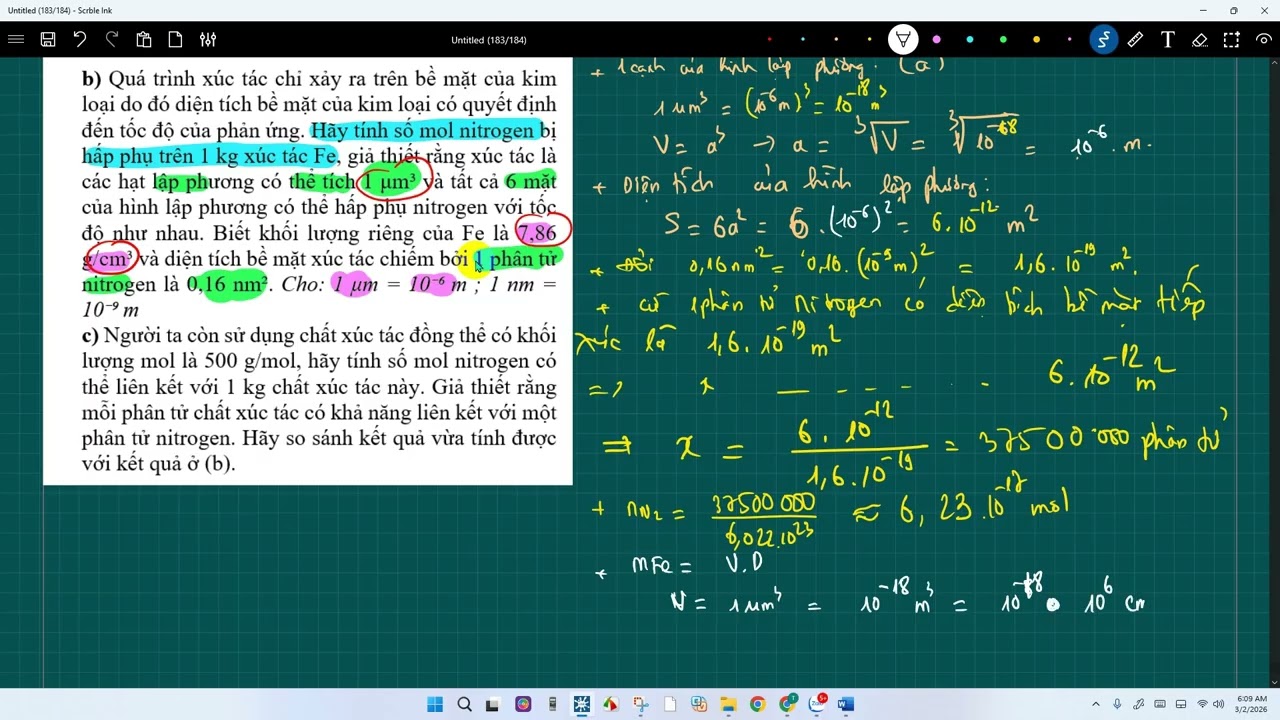 Untitled (183/184) - Scrble Ink
Untitled (183/184)
b) Quá trình xúc tác chỉ xảy ra trên bề mặt của kim
loại do đó diện tích bề mặt của kim loại có quyết định
đến tốc độ của phản ứng. Hãy tính số mol nitrogen bị
hấp phụ trên 1 kg xúc tác Fe, giả thiết rằng xúc tác là
các hạt lập phương có thể tích 1 μm³ và tất cả 6 mặt
của hình lập phương có thể hấp phụ nitrogen với tốc
độ như nhau. Biết khối lượng riêng của Fe là 7,86
g/cm³ và diện tích bề mặt xúc tác chiếm bởi 1 phân tử
nitrogen là 0,16 nm². Cho: 1 μm = 10⁻⁶ m ; 1 nm =
10⁻⁹ m
c) Người ta còn sử dụng chất xúc tác đồng thể có khối
lượng mol là 500 g/mol, hãy tính số mol nitrogen có
thể liên kết với 1 kg chất xúc tác này. Giả thiết rằng
mỗi phân tử chất xúc tác có khả năng liên kết với một
phân tử nitrogen. Hãy so sánh kết quả vừa tính được
với kết quả ở (b).
+ 1 cạnh của hình lập phương: (a)
1 μm³ = (10⁻⁶m)³ = 10⁻¹⁸ m³
V = a³ → a = ³√V = ³√10⁻¹⁸ = 10⁻⁶ m.
+ Diện tích của hình lập phương:
S = 6a² = 6.(10⁻⁶)² = 6.10⁻¹² m²
* Đổi 0,16nm² = 0,16.(10⁻⁹m)² = 1,6.10⁻¹⁹ m².
+ cứ 1 phân tử Nitrogen có diện tích bề mặt tiếp
xúc là 1,6.10⁻¹⁹ m²
=> x — - - - - 6.10⁻¹² m²
⇒ x = 6.10⁻¹² / 1,6.10⁻¹⁹ = 37500.000 phân tử
+ nN₂ = 37500 000 / 6,022.10²³ ≈ 6,23.10⁻¹⁷ mol
* mFe = V.D
V = 1 μm³ = 10⁻¹⁸ m³ = 10⁻¹⁸ • 10⁶ cm
6:09 AM
3/2/2026